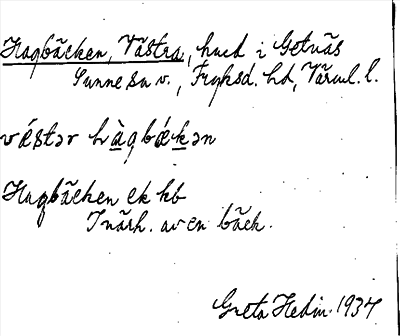 Hagbäcken, Västra, hmd i Getnäs
Sunne sn v., Fryksd. hd, Värml. l.
vǽstər hàgbǽkən
Hagbäcken ek kb
I närh. av en bäck.
Greta Hedin 1937